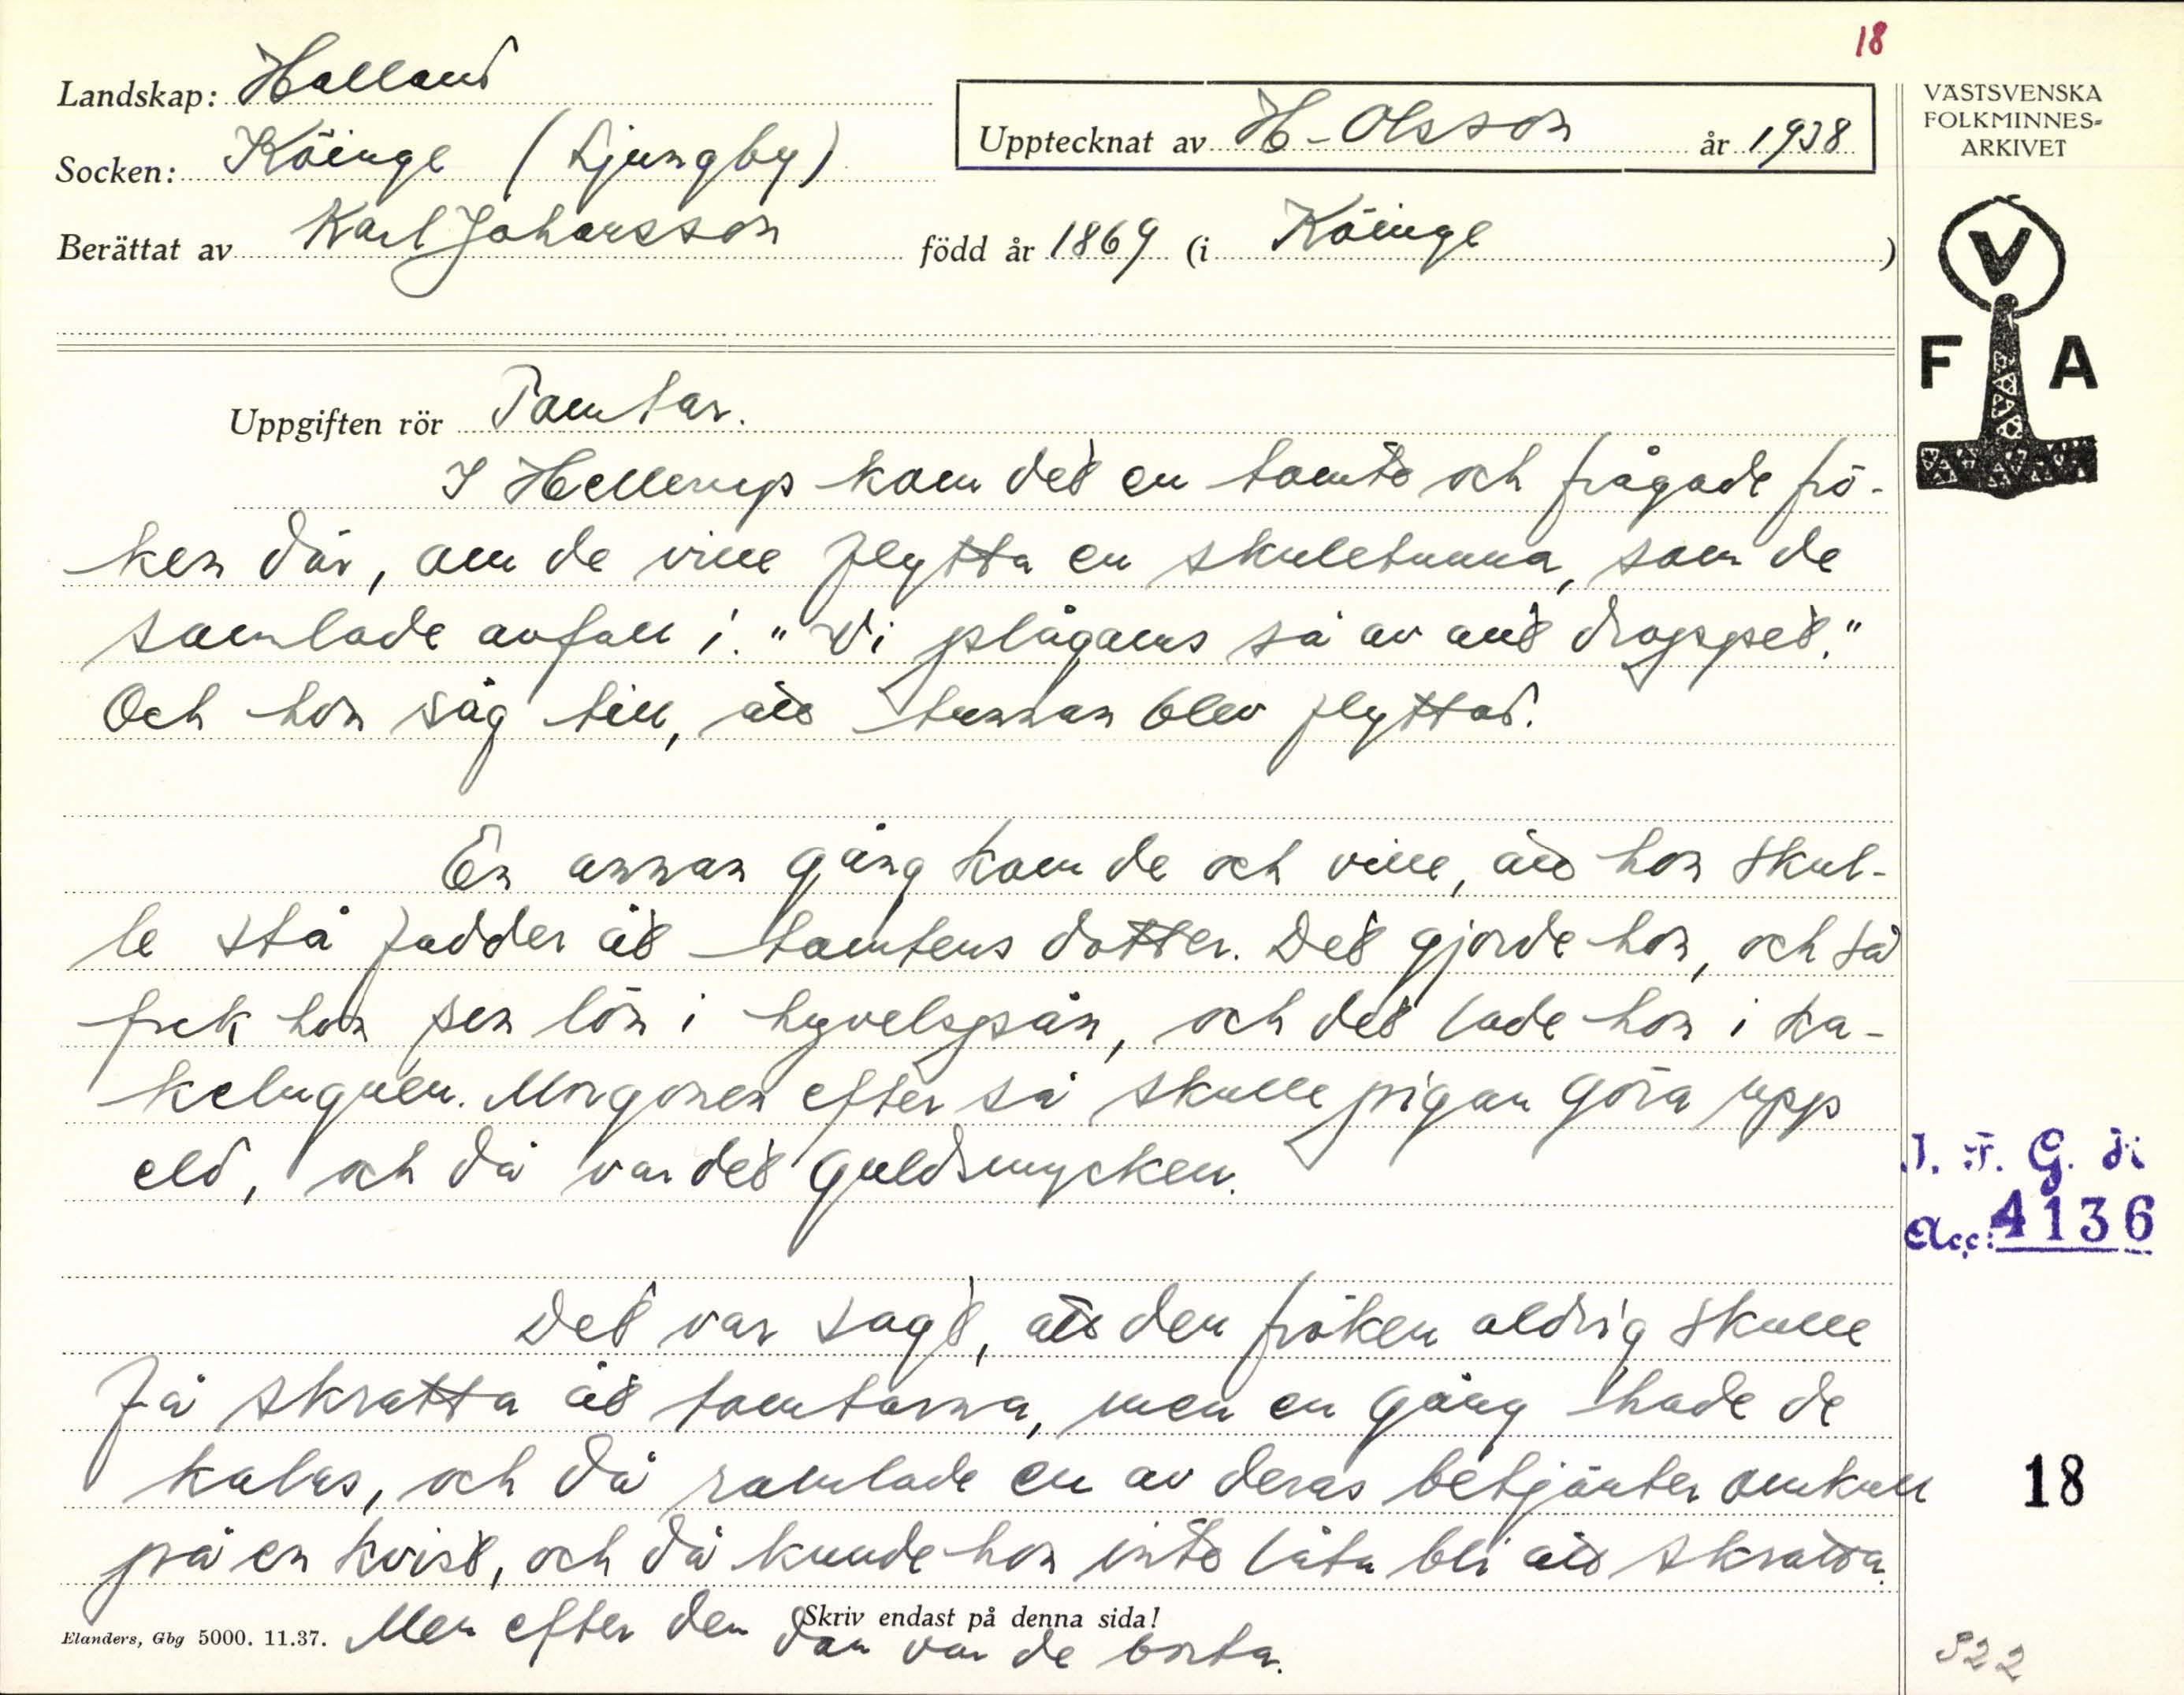 18
Landskap: Halland
VÄSTSVENSKA
FOLKMINNES-
ARKIVET
Upptecknat av H. Olsson år 1938
Socken: Köinge (Ljungby)
Berättat av Karl Johansson född år 1869 (i Köinge)
V
F A
Uppgiften rör Tomtar.
I Hellerup kom det en tomte och frågade frö-
ken där, om de ville flytta en skuletunna, som de
samlade avfall i. "Vi plågams så av att droppet."
Och hon såg till, att tunnan blev flyttad.
En annan gång kom de och ville, att hon skul-
le stå fadder åt tomtens dotter. Det gjorde hon, och så
fick hon sen lön i hyvelspån, och det lade hon i ka-
kelugnen. Morgonen efter så skulle pigan göra upp
eld, och då var det guldsmycken.
J. F. G. s:
Acc: 4136
Det var sagt, att den fröken aldrig skulle
få skratta åt tomtarna, men en gång hade de
kalas, och då ramlade en av deras betjänter omkull
18
på en kvist, och då kunde hon inte låta bli att skratta.
Men efter den dan var de borta.
Skriv endast på denna sida!
Elanders, Gbg 5000. 11.37.
522